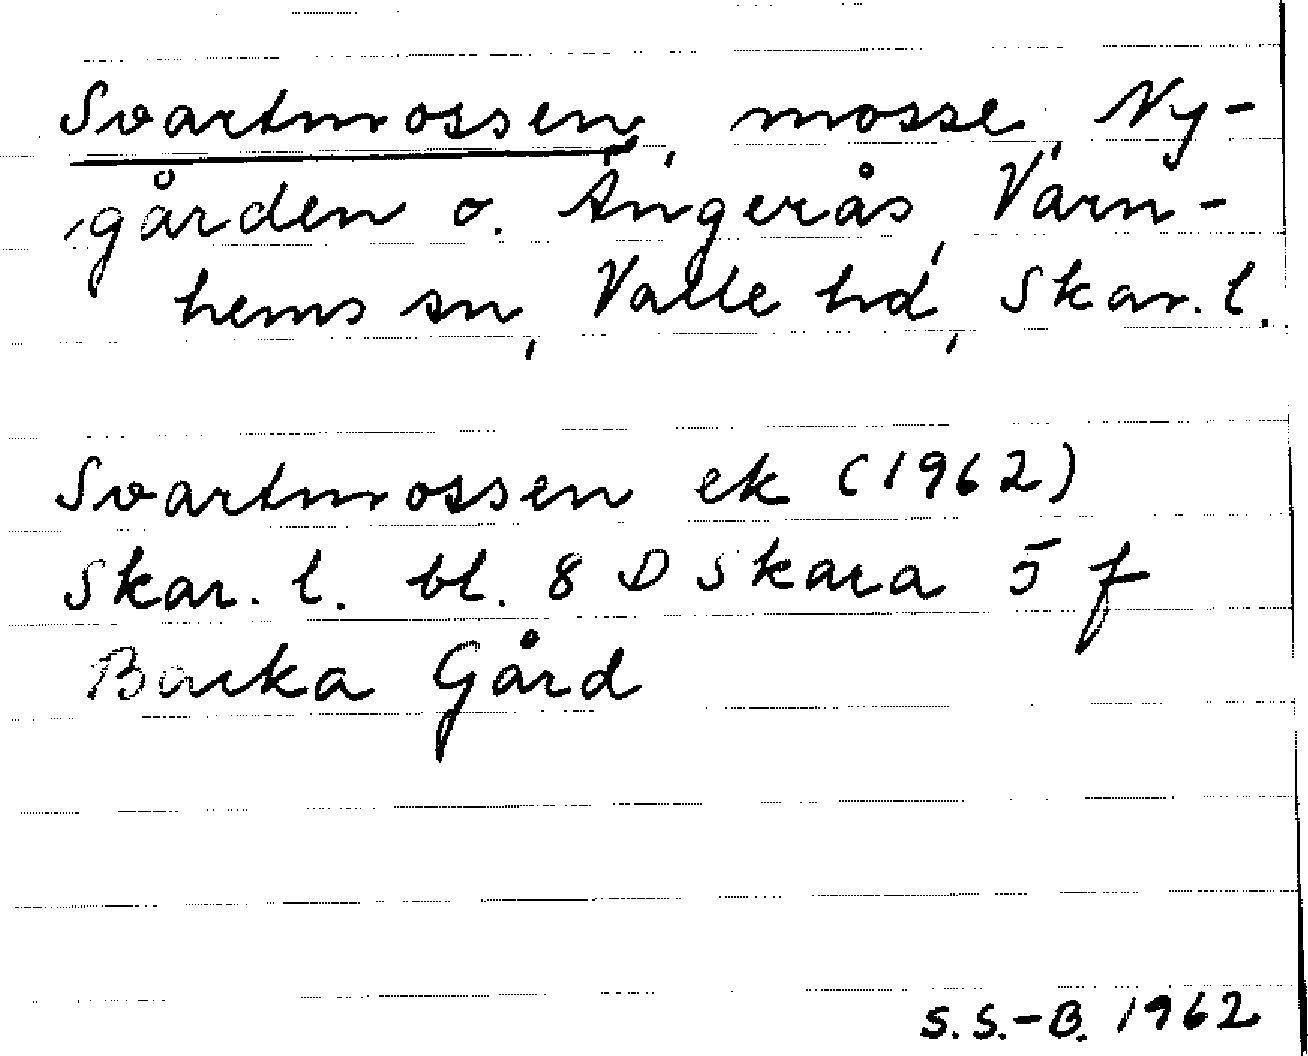 Svartmossen, mosse, Ny-
gården o. Ängerås, Varn-
hems sn, Valle hd, Skar. l.
Svartmossen ek (1962)
Skar. l. bl. 8 D Skara 5 f
Backa Gård
S. S.-B. 1962